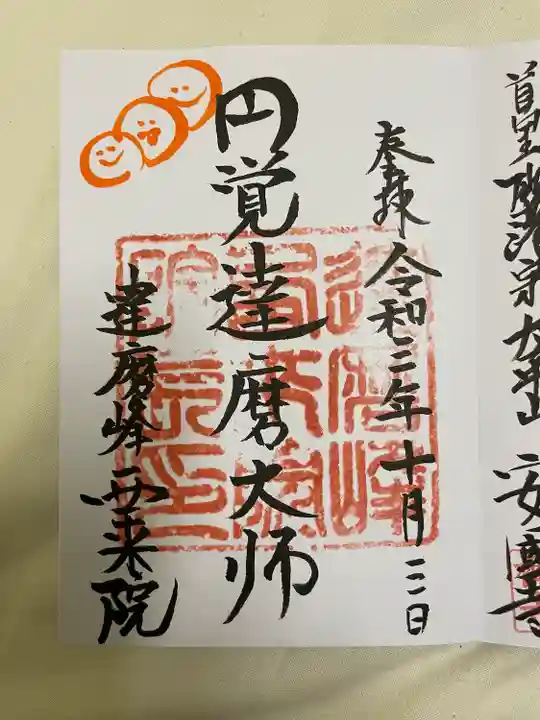 首里臨済宗太平山 安國寺
奉拝 令和三年十月三日
円覚達磨大師
達磨峰西来院